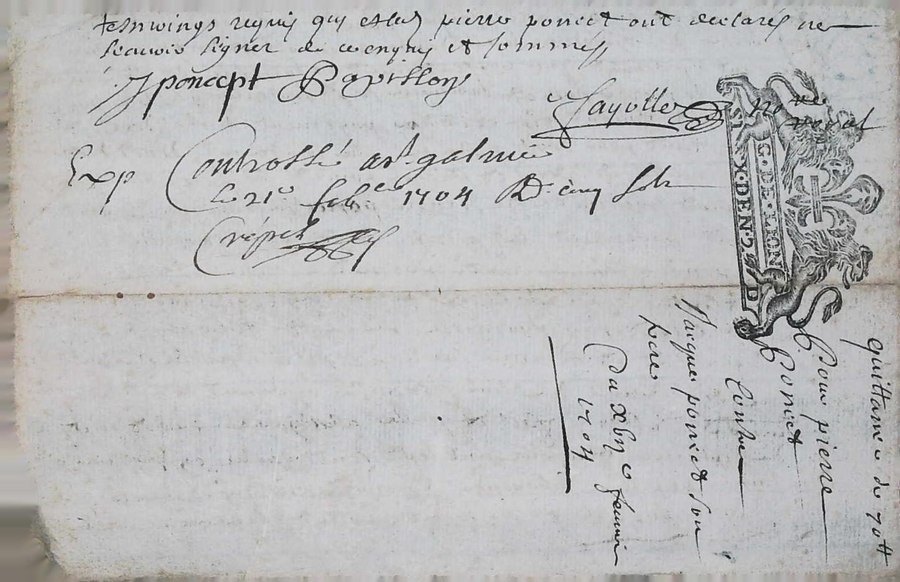 tesmoings requis qui et led pierre poncet ont declarés ne
scavoir signer de ce enquis et sommés
J poncept Papillon
Fayolle no.re royal
Exp Controllé a st galmier
le 21e feb. 1704 R. cinq sols
Crespet
G. DE LION
SIX. DEN. 2. D
quittance de 70tt
Pour pierre
Poncet
Contre
Jacques poncet son
pere
Du xbij e feuvrier
1704